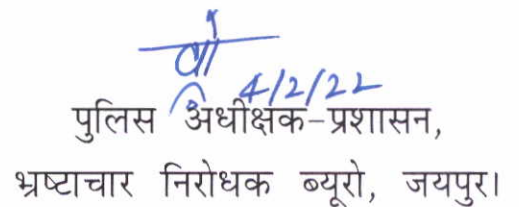 4/2/22
पुलिस अधीक्षक-प्रशासन,
भ्रष्टाचार निरोधक ब्यूरो, जयपुर।